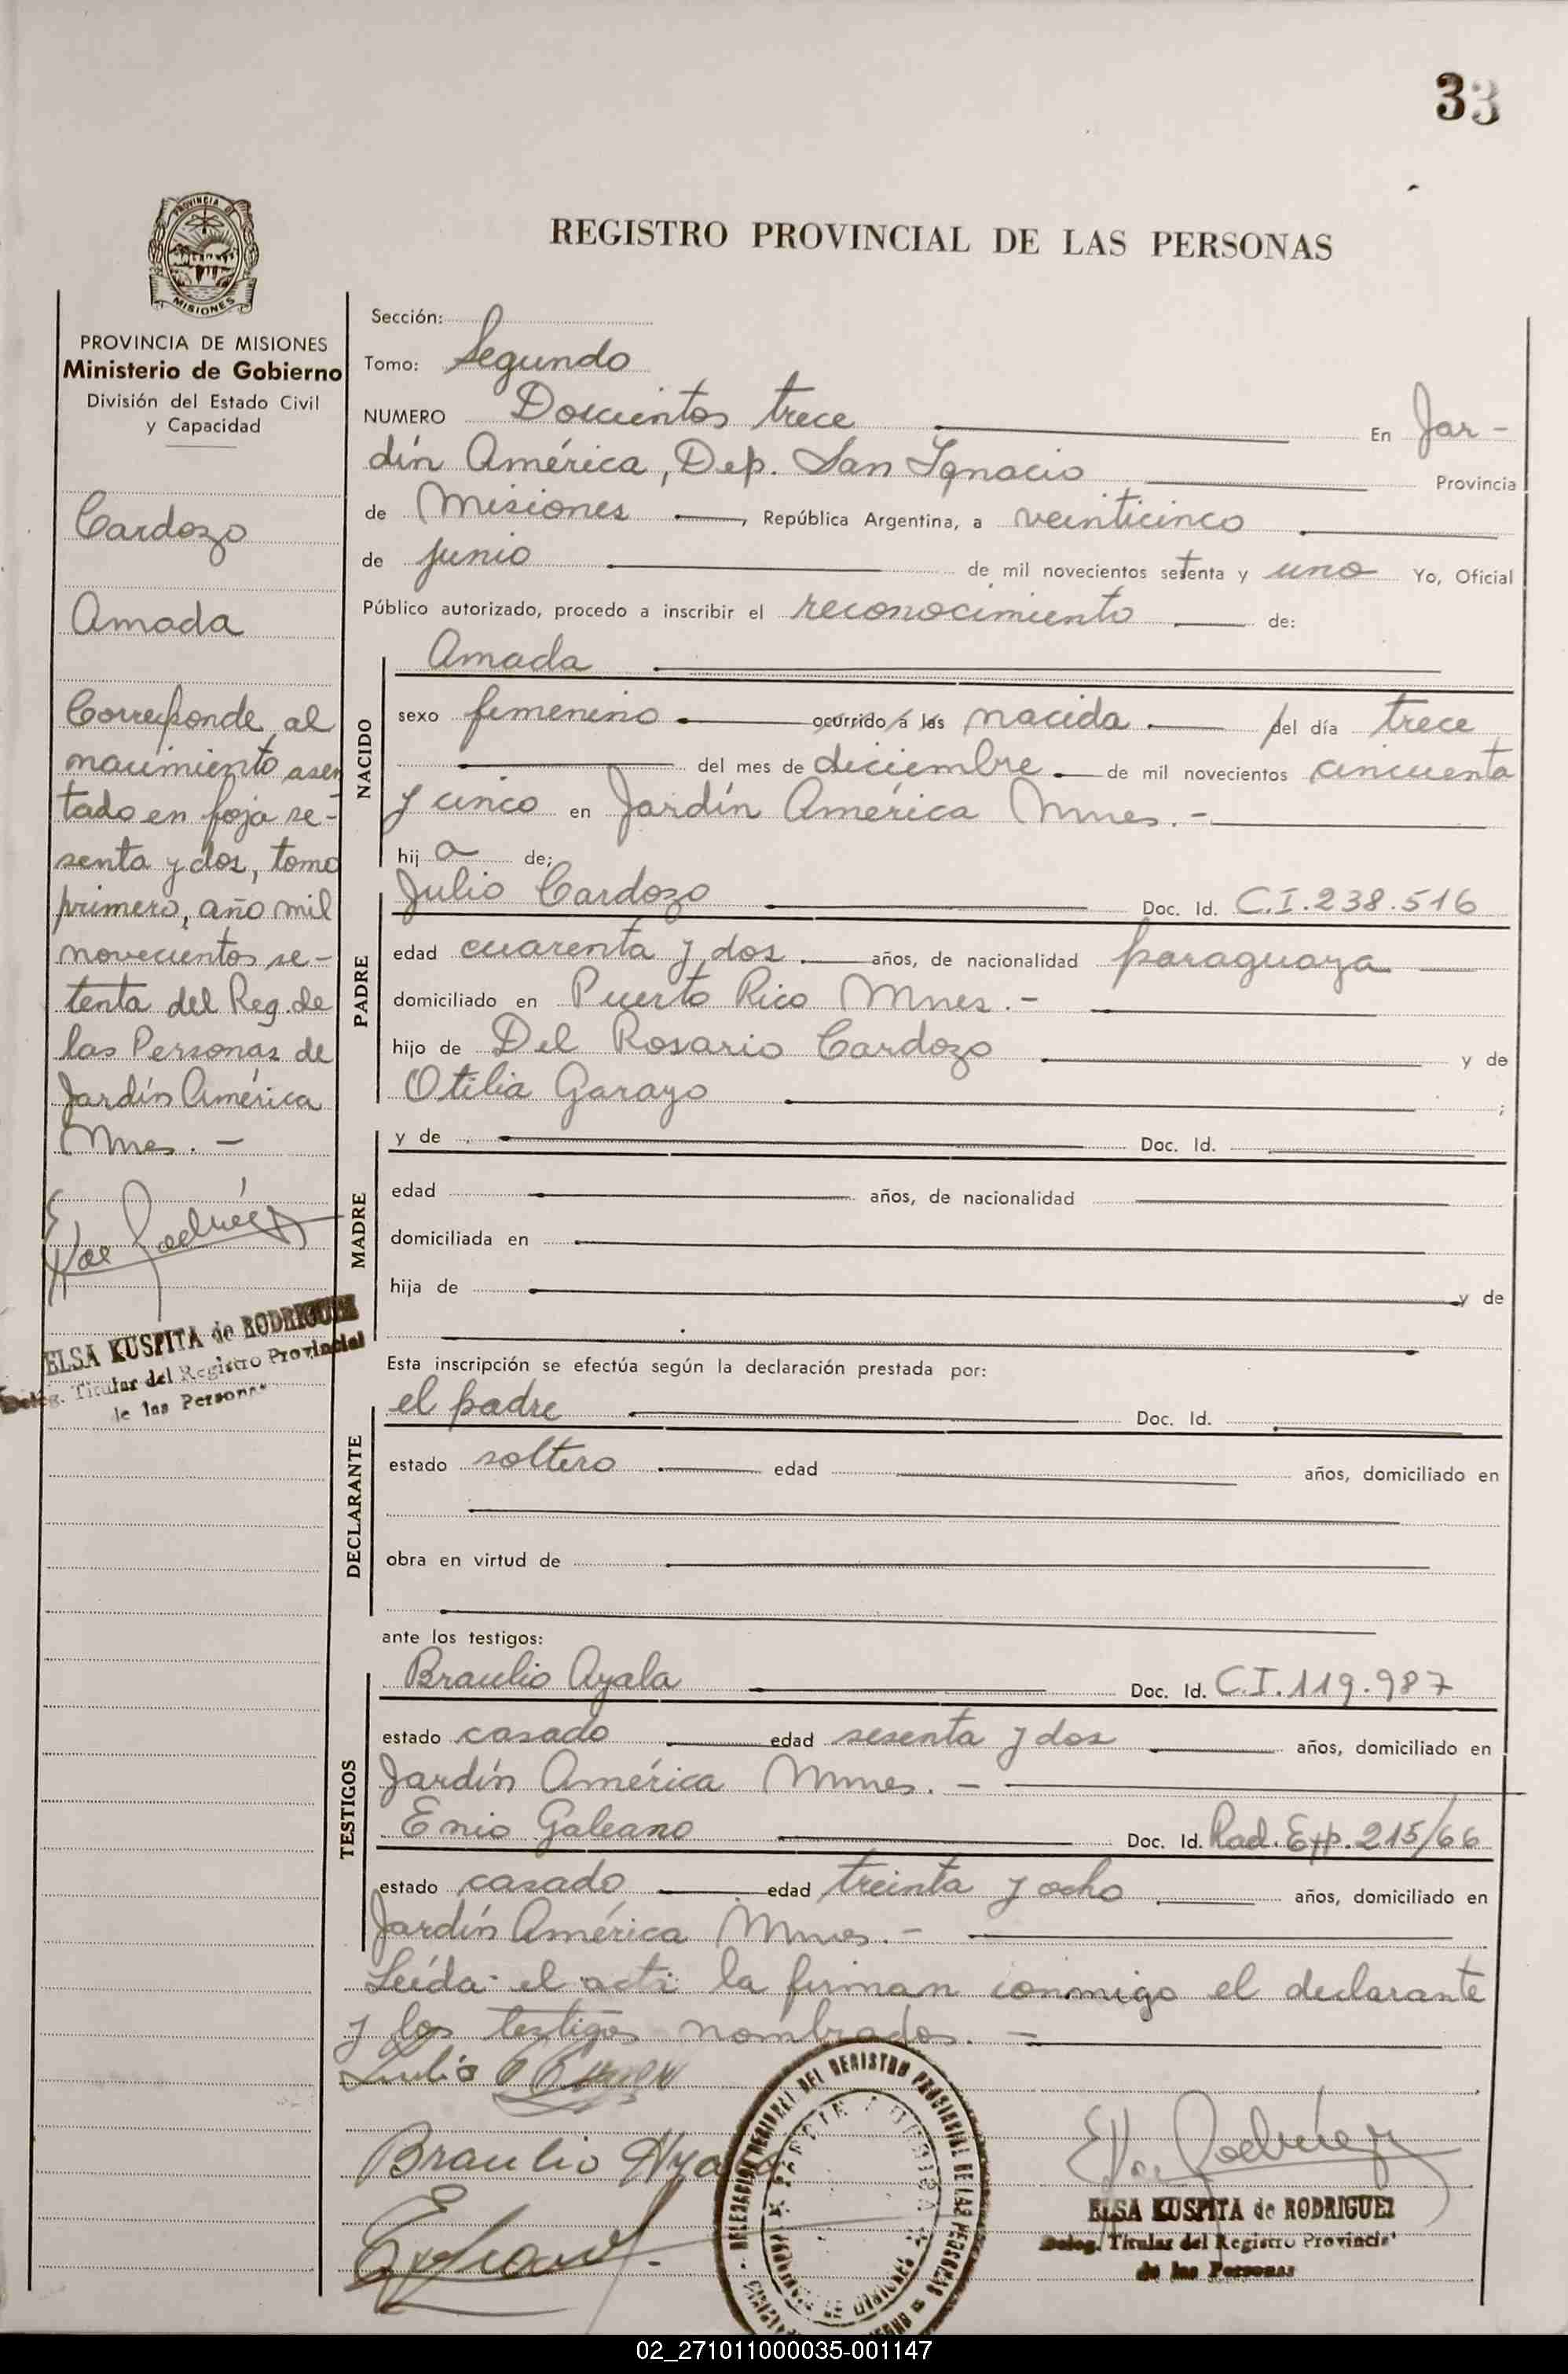 33
REGISTRO PROVINCIAL DE LAS PERSONAS
PROVINCIA DE
MISIONES
PROVINCIA DE MISIONES
Ministerio de Gobierno
División del Estado Civil
y Capacidad
Cardozo
Amada
Corresponde al
nacimiento asen
tado en foja se-
senta y dos, tomo
primero, año mil
novecientos se-
tenta del Reg. de
las Personas de
Jardín América
Mnes. -
ELSA KUSPITA de RODRIGUEZ
Deleg. Titular del Registro Provincial
de las Personas
Sección:
Tomo: Segundo
NUMERO Doscientos trece En Jar-
dín América, Dep. San Ignacio Provincia
de Misiones, República Argentina, a veinticinco
de junio de mil novecientos setenta y uno Yo, Oficial
Público autorizado, procedo a inscribir el reconocimiento de:
NACIDO
Amada
sexo femenino ocurrido a las nacida del día trece
del mes de diciembre de mil novecientos cincuenta
y cinco en Jardín América Mnes. -
hij a de;
PADRE
Julio Cardozo Doc. Id. C.I. 238.516
edad cuarenta y dos años, de nacionalidad paraguaya
domiciliado en Puerto Rico Mnes. -
hijo de Del Rosario Cardozo y de
Otilia Garayo ;
MADRE
y de Doc. Id.
edad años, de nacionalidad
domiciliada en
hija de y de
Esta inscripción se efectúa según la declaración prestada por:
DECLARANTE
el padre Doc. Id.
estado soltero edad años, domiciliado en
obra en virtud de
ante los testigos:
TESTIGOS
Braulio Ayala Doc. Id. C.I. 119.987
estado casado edad sesenta y dos años, domiciliado en
Jardín América Mnes. -
Enio Galeano Doc. Id. Rad. Exp. 215/66
estado casado edad treinta y ocho años, domiciliado en
Jardín América Mnes. -
Leída el acta la firman conmigo el declarante
y los testigos nombrados. -
Julio
Braulio Ayala
DELEGACION REGIONAL DEL REGISTRO PROVINCIAL DE LAS PERSONAS
PROVINCIA DE MISIONES
ELSA KUSPITA de RODRIGUEZ
Deleg. Titular del Registro Provincial
de las Personas
02_271011000035-001147